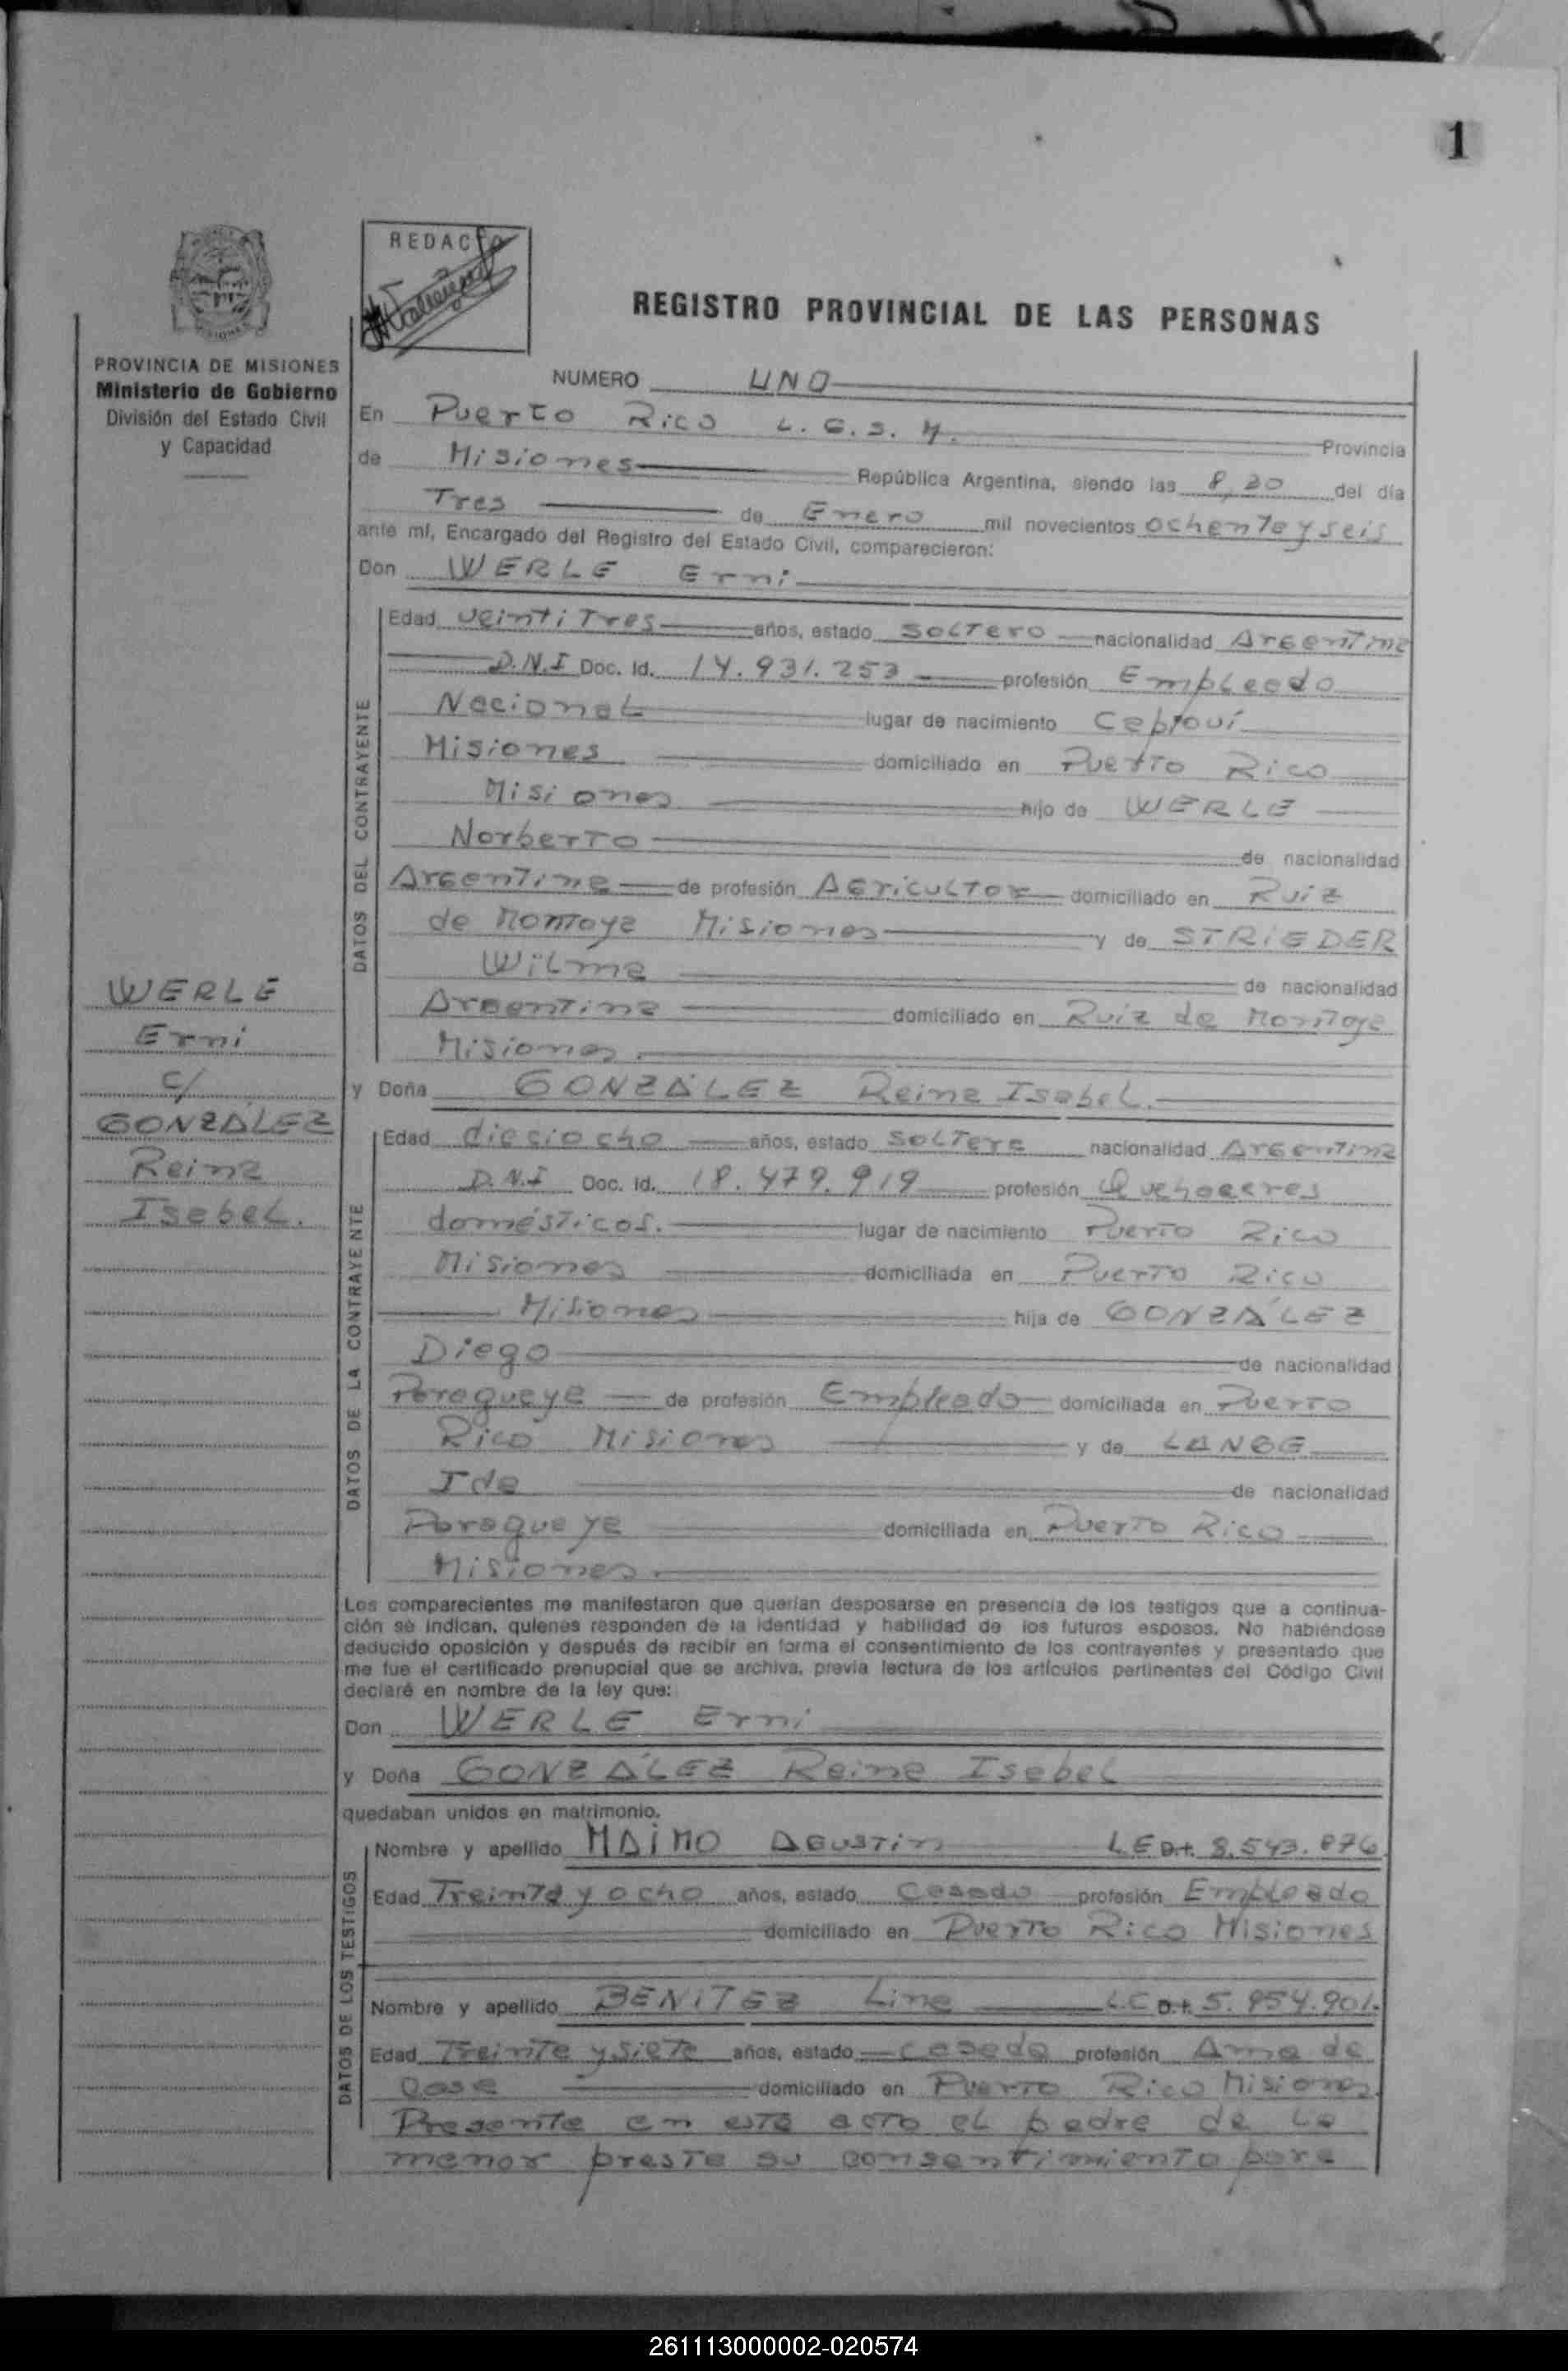 1
REDACTO
REGISTRO PROVINCIAL DE LAS PERSONAS
PROVINCIA DE MISIONES
Ministerio de Gobierno
División del Estado Civil
y Capacidad
WERLE
Erni
c/
GONZÁLEZ
Reina
Isabel.
NUMERO UNO
En Puerto Rico L. G. S. M. Provincia
de Misiones República Argentina, siendo las 8,20 del día
Tres de Enero mil novecientos ochenta y seis
ante mí, Encargado del Registro del Estado Civil, comparecieron:
Don WERLE Erni
DATOS DEL CONTRAYENTE
Edad veintitres años, estado soltero nacionalidad Argentina
D.N.I Doc. Id. 14.931.253 profesión Empleado
Nacional lugar de nacimiento Capioví
Misiones domiciliado en Puerto Rico
Misiones hijo de WERLE
Norberto de nacionalidad
Argentina de profesión Agricultor domiciliado en Ruiz
de Montoya Misiones y de STRIEDER
Wilma de nacionalidad
Argentina domiciliado en Ruiz de Montoya
Misiones.
y Doña GONZÁLEZ Reina Isabel.
DATOS DE LA CONTRAYENTE
Edad dieciocho años, estado soltera nacionalidad Argentina
D.N.I Doc. Id. 18.479.919 profesión Quehaceres
domésticos. lugar de nacimiento Puerto Rico
Misiones domiciliada en Puerto Rico
Misiones hija de GONZÁLEZ
Diego de nacionalidad
Paraguaya de profesión Empleado domiciliada en Puerto
Rico Misiones y de LANGE
Ida de nacionalidad
Paraguaya domiciliada en Puerto Rico
Misiones.
Los comparecientes me manifestaron que querían desposarse en presencia de los testigos que a continua-
ción se indican, quienes responden de la identidad y habilidad de los futuros esposos. No habiéndose
deducido oposición y después de recibir en forma el consentimiento de los contrayentes y presentado que
me fue el certificado prenupcial que se archiva, previa lectura de los artículos pertinentes del Código Civil
declaré en nombre de la ley que:
Don WERLE Erni
y Doña GONZÁLEZ Reina Isabel
quedaban unidos en matrimonio.
DATOS DE LOS TESTIGOS
Nombre y apellido MAIMO Agustin L E D.I. 8.543.876
Edad Treinta y ocho años, estado Casado profesión Empleado
domiciliado en Puerto Rico Misiones
Nombre y apellido BENITEZ Lina L.C D.I. 5.954.901.
Edad Treinta y siete años, estado casada profesión Ama de
Casa domiciliado en Puerto Rico Misiones.
Presente en este acto el padre de la
menor presta su consentimiento para
261113000002-020574